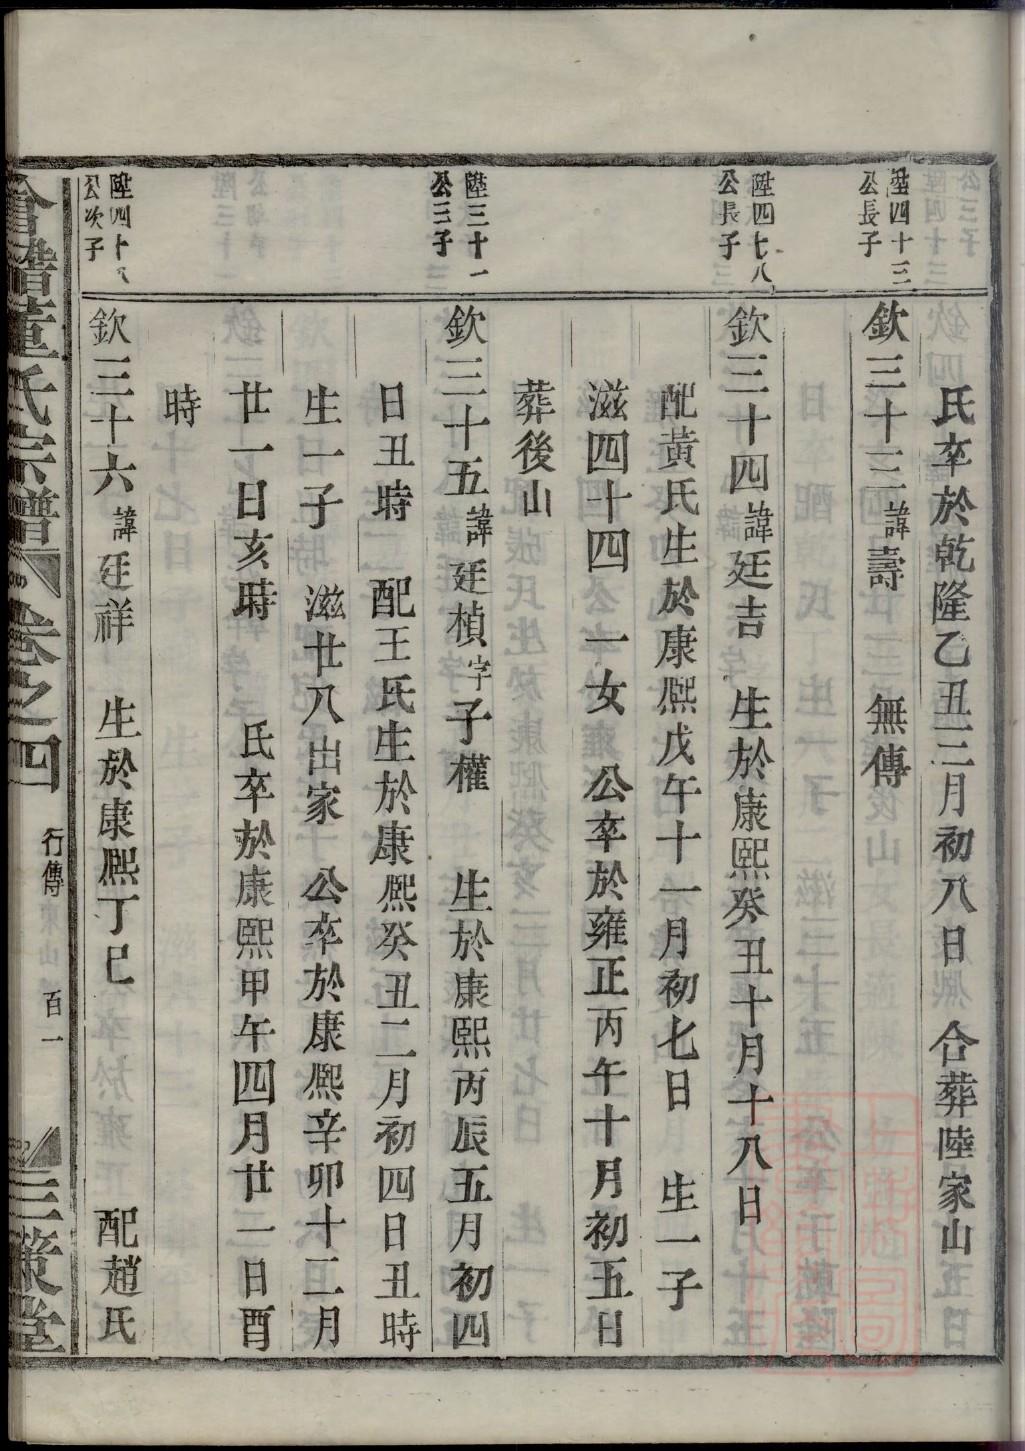 氏卒於乾隆乙丑三月初八日 合葬陸家山
陞四十三
公長子
欽三十三諱壽 無傳
陞四十八
公長子
欽三十四諱廷吉 生於康熙癸丑十月十八日
配黃氏生於康熙戊午十一月初七日 生一子
滋四十四 一女 公卒於雍正丙午十月初五日
葬後山
陞三十一
公三子
欽三十五諱廷楨字子權 生於康熙丙辰五月初四
日丑時 配王氏生於康熙癸丑二月初四日丑時
生一子 滋廿八出家 公卒於康熙辛卯十二月
廿一日亥時 氏卒於康熙甲午四月廿一日酉
時
陞四十八
公次子
欽三十六諱廷祥 生於康熙丁巳 配趙氏
會稽董氏宗譜 卷之四 行傳 東山 百一 三策堂